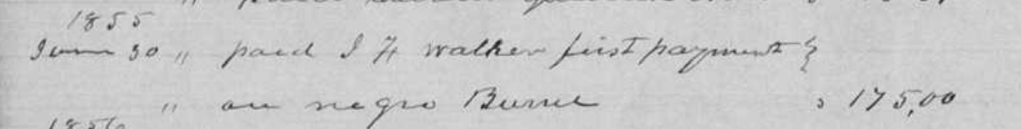 1855
June 30 " paid J H walker first payment }
" on negro Burrel " 175,00
1856